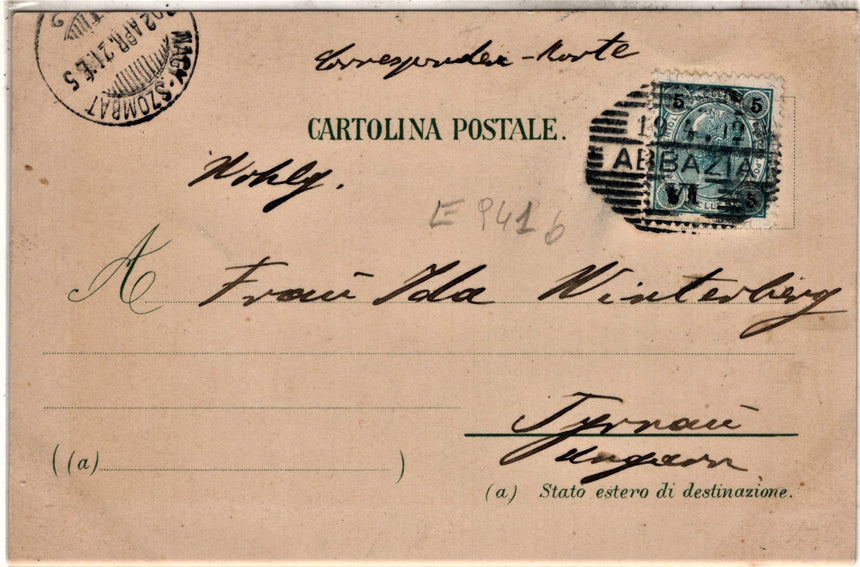 902 APR. 21. E 5
NAGY-SZOMBAT
Correspondenz-Karte
CARTOLINA POSTALE.
5 5
19 4 02
ABBAZIA
VI
Wohlg.
E 941 b
A Frau Ida Winterberg
Tyrnau
Ungarn
((a) )
(a) Stato estero di destinazione.